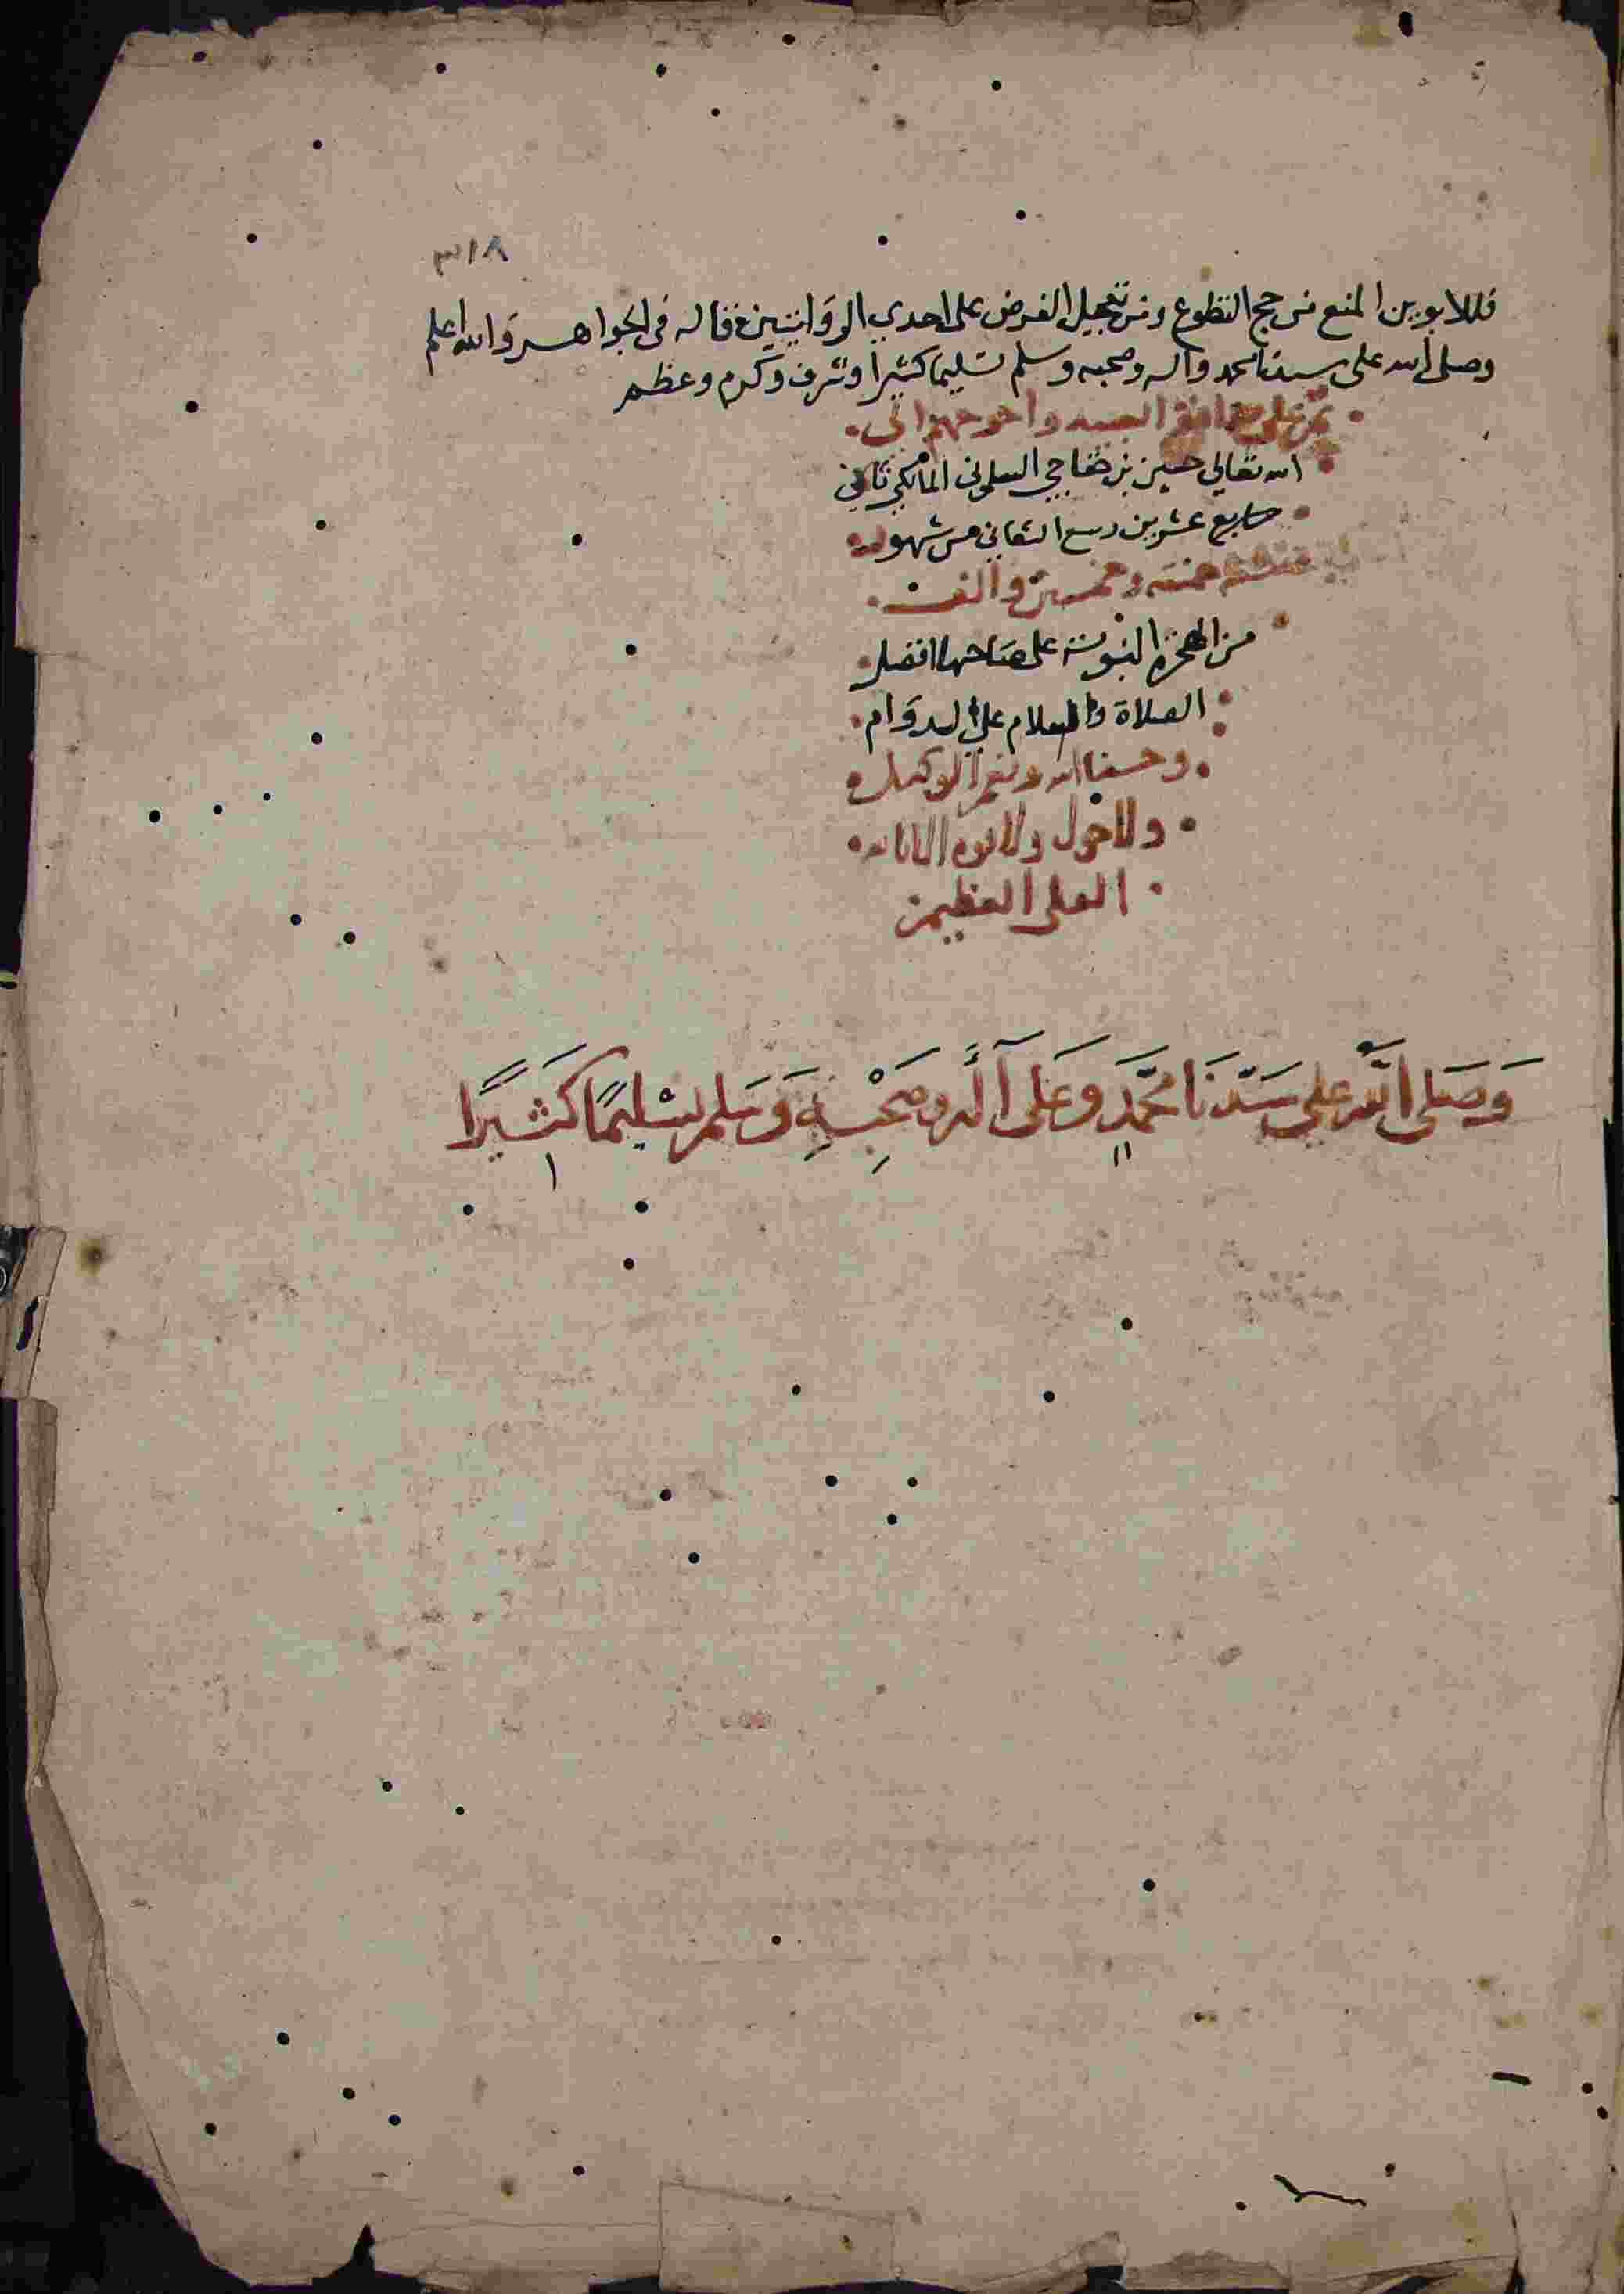 ٨١٣
فللابوين المنع من حج التطوع ومن تعجيل الفرض على احدي الروايتين قاله في الجواهر والله اعلم
وصلى الله على سيدنا محمد واله وصحبه وسلم تسليما كثيرا وشرف وكرم وعظم
افقر العبيد واحوجهم الى
الله تعالي حسين بن خفاجي المالكي
عشرين ربيع الثاني من شهور
سنة خمسة وخمسين والف
من الهجرة النبوية على صاحبها افضل
الصلاة والسلام علي الدوام
وحسبنا الله ونعم الوكيل
ولا حول ولا قوة الا بالله
العلى العظيم
وَصَلى اللَّه علي سَيّدنَا محَمَّدٍ وَعَلَى آله وصَحْبِهِ وَسَلم تسْليمًا كَثيرًا